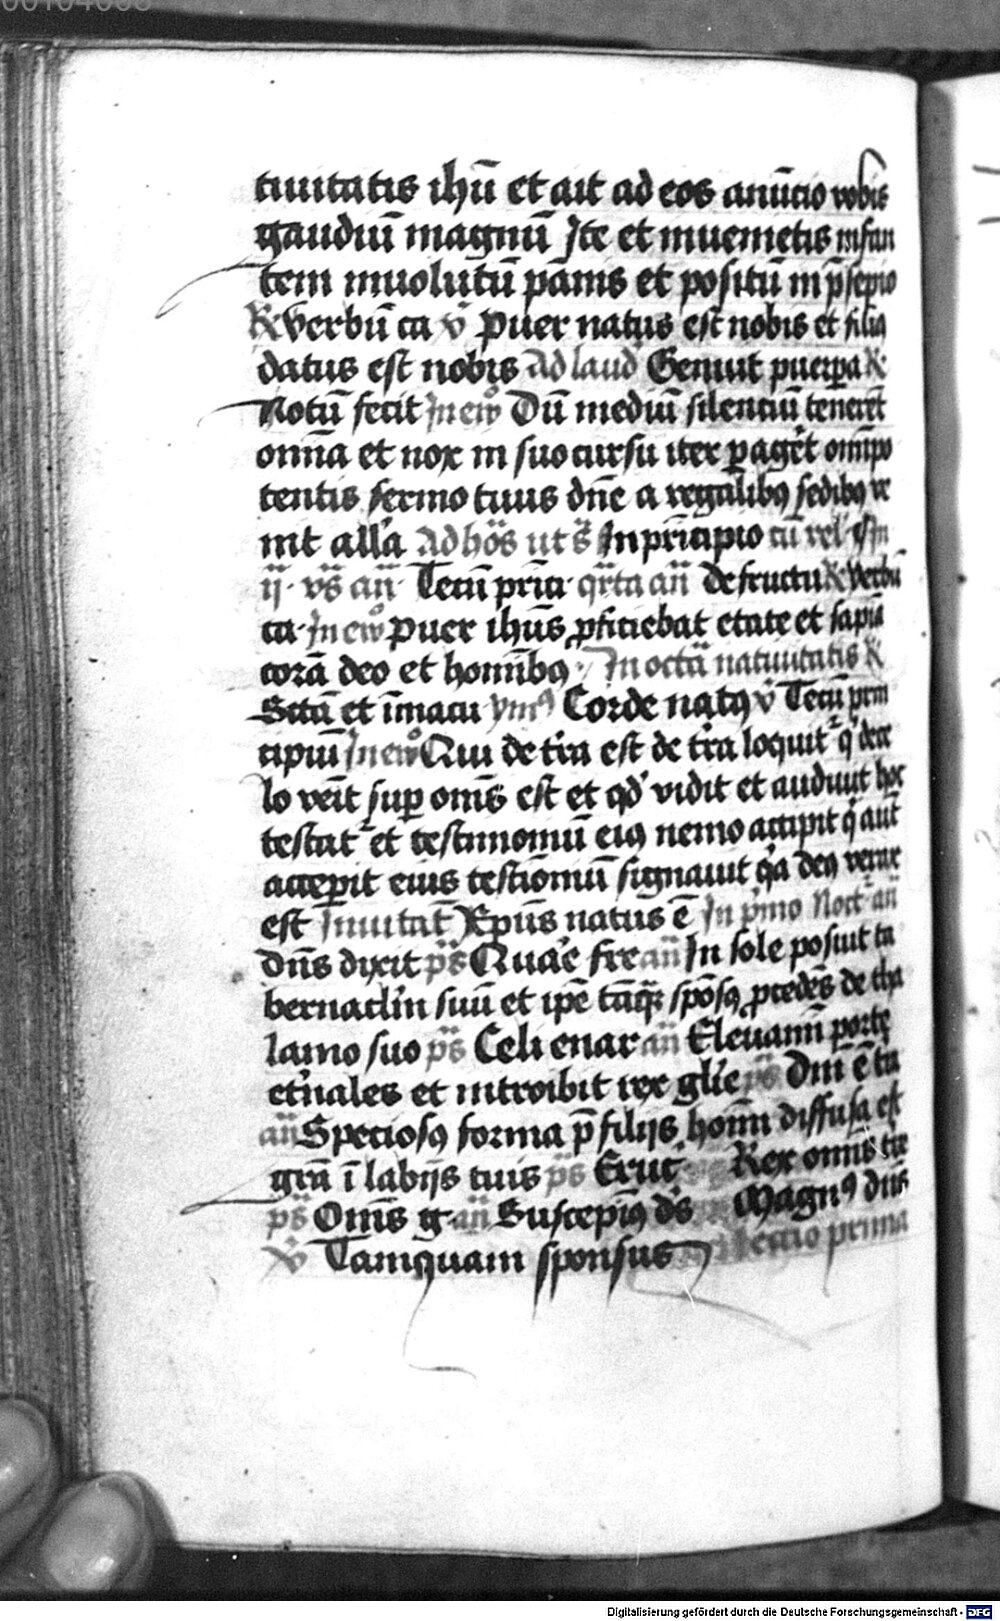 tiuitatis ihū et ait ad eos anūcio vobis
gaudiū magnū Ite et inuenietis infan
tem inuolutū pānis et positū in p̄sepio
R Verbū ca v̄ Puer natus est nobis et filiꝯ
datus est nobis Ad laud Genuit puerpa R
Notū fecit In ew̄ Dū mediū silenciū tenerēt
omīa et nox in suo cursu iter pagēt omīpo
tentis sermo tuus dn̄e a regalibꝯ sedibꝯ ve
nit all'a Ad hōs ut s̄ In prīcipio cū rel'
ij · vs̄ an̄ · Tecū prīci · qrta an̄ De fructu R Verbū
ca · In ew̄ Puer ihūs ꝓficiebat etate et sapiā
corā deo et homībꝯ · In octā natiuitatis R
Sctā et īmacu ymꝯ Corde natꝯ v̄ Tecū prin
cipiū In ew̄ Qui de tr̄a est de tr̄a loquit̄ q' de ce
lo venīt sup omēs est et qd' vidit et audiuit hoc
testat̄ et testimoniū eiꝯ nemo accipit q' aut
acceperit eius testiōniū signauit q'a deꝯ verax
est Inuitat̄ Xp̄us natus ē In p'mo Noct̄ an̄
Dn̄s dixit ps̄ Quae fre an̄ In sole posuit ta
bernaclm̄ suū et ipē tāqꝫ spōsꝯ ꝓcedēs de tha
lamo suo ps̄ Celi enar an̄ Eleuamī porte
et'nales et introibit rex gl'ie ps̄ Dnī ē t'ra
an̄ Speciosꝯ forma p̄ filijs homī diffusa est
grā ī labijs tuis ps̄ Eruc Rex omīs t're
ps̄ Omēs g · an̄ Suscepimꝯ ds̄ Magnꝯ dn̄s
v̄ Tamquam sponsus Lectio prima